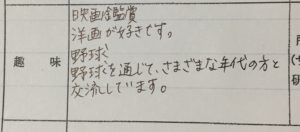 映画鑑賞
洋画が好きです。
趣味
野球
野球を通じて、さまざまな年代の方と
交流しています。